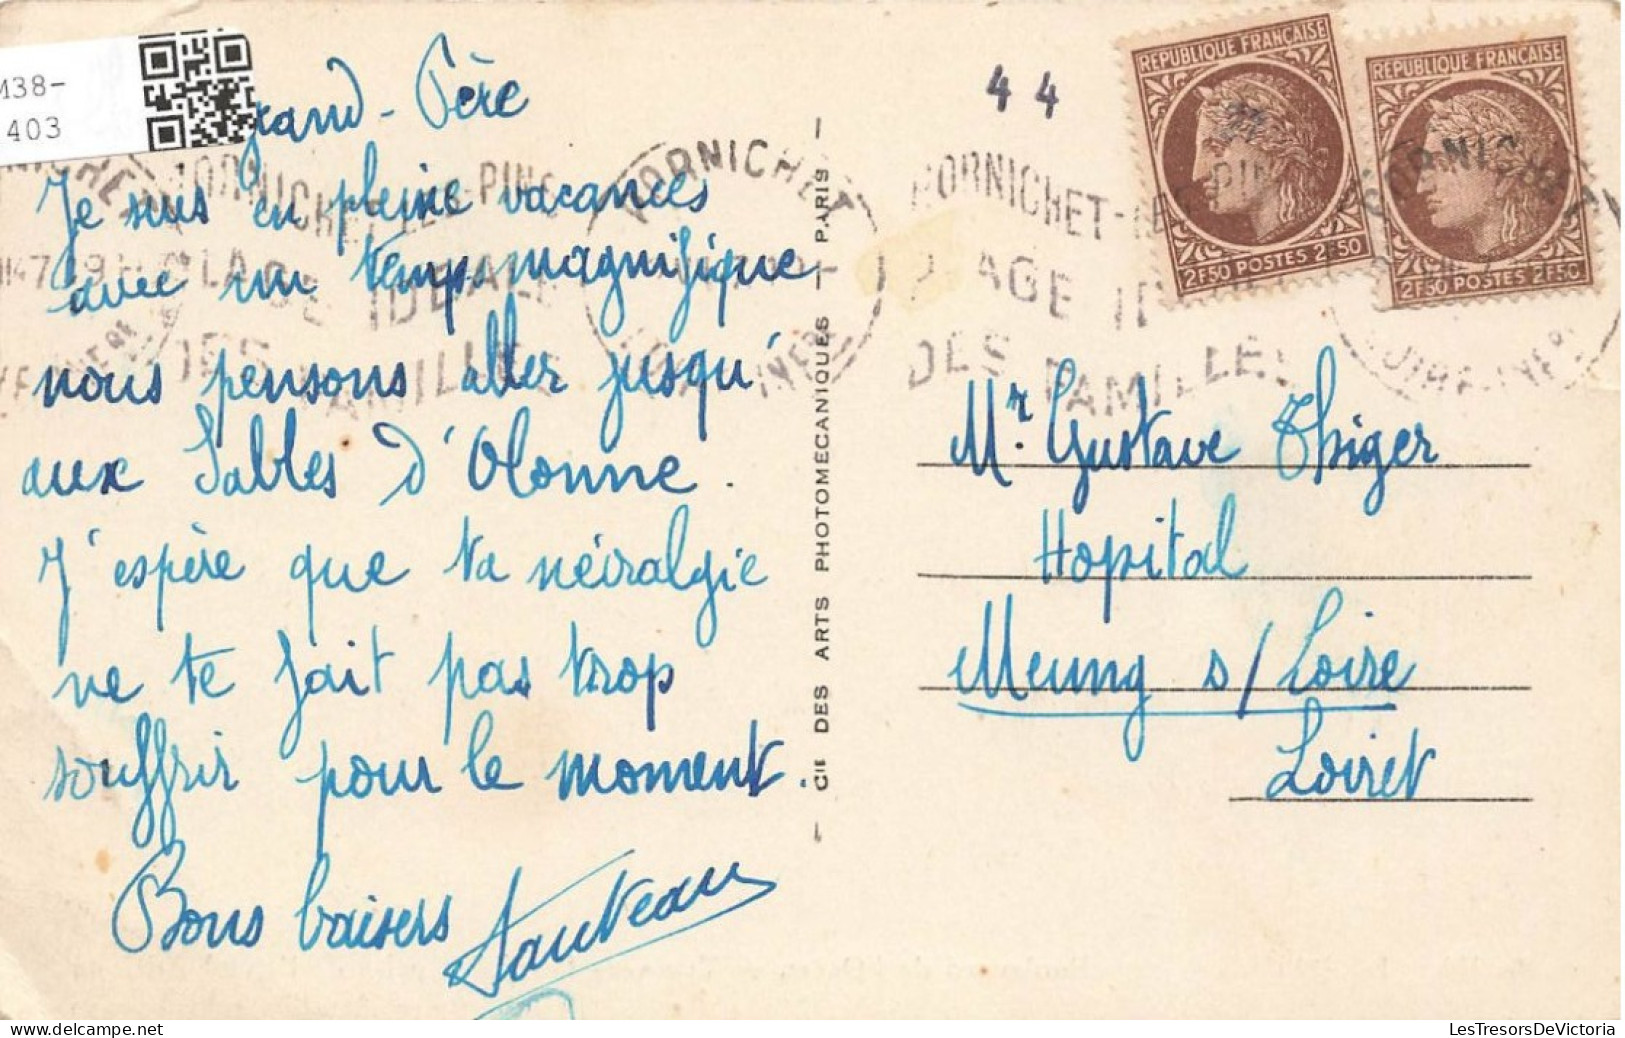 M38-
403
Grand-Père
Je suis en pleine vacances
avec un temps magnifique
nous pensons aller jusqu'
aux Sables d'Olonne.
J'espère que ta névralgie
ne te fait pas trop
souffrir pour le moment.
Bons baisers
CIE DES ARTS PHOTOMÉCANIQUES - PARIS
44
RÉPUBLIQUE FRANÇAISE
2F50 POSTES 2F50
RÉPUBLIQUE FRANÇAISE
2F50 POSTES 2F50
PORNICHET-LES-PINS
PLAGE IDÉALE
DES FAMILLES
PORNICHET
LOIRE-INFRE
PORNICHET-LES-PINS
PLAGE IDÉALE
DES FAMILLES
PORNICHET
LOIRE-INFRE
Mr. Gustave Thiger
Hopital
Meung s/Loire
Loiret
delcampe.net
LesTresorsDeVictoria